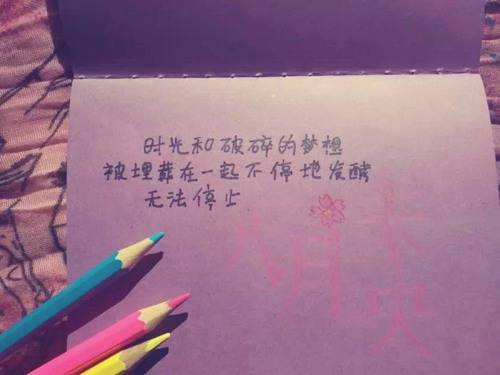 时光和破碎的梦想
被埋葬在一起不停地发酵
无法停止
八月
未央